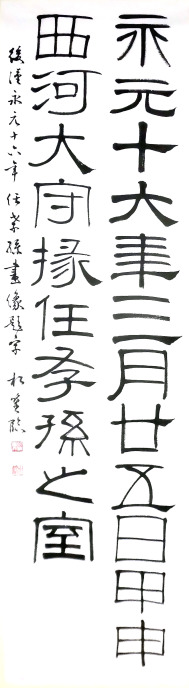 永元十六年三月廿五日甲申
西河大守掾任孝孫之室
後漢永元十六年任孝孫畫像題字 松逕臨